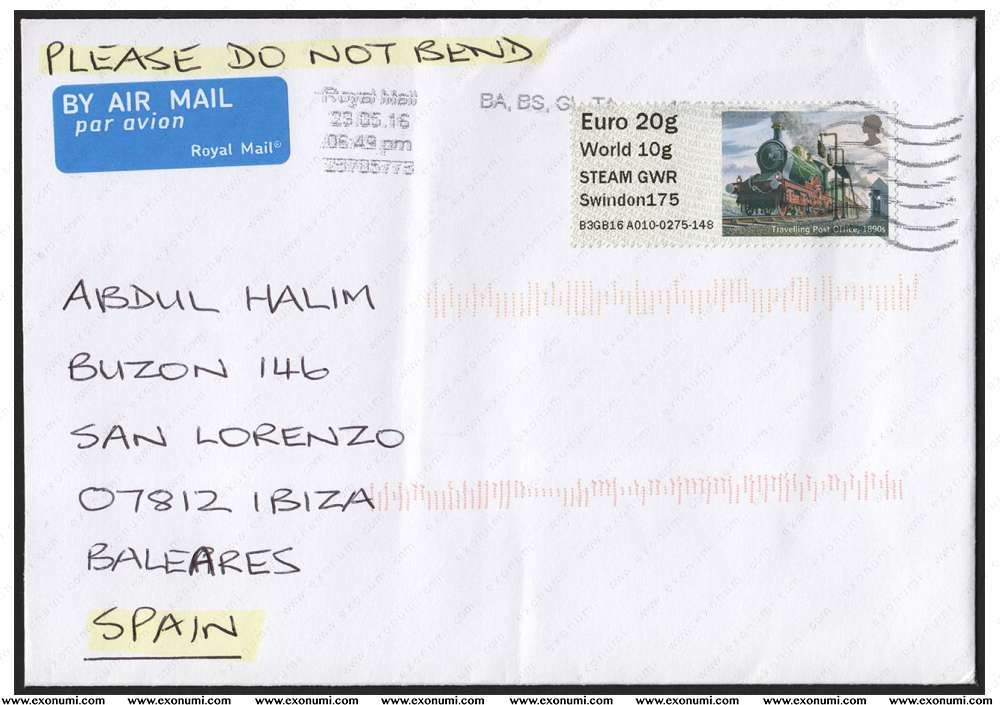 PLEASE DO NOT BEND
BY AIR MAIL
par avion
Royal Mail
Royal Mail
23.05.16
06:49 pm
BA, BS, GL, TA
Euro 20g
World 10g
STEAM GWR
Swindon175
B3GB16 A010-0275-148
Travelling Post Office, 1890s
ABDUL HALIM
BUZON 146
SAN LORENZO
07812 IBIZA
BALEARES
SPAIN
www.exonumi.com www.exonumi.com www.exonumi.com www.exonumi.com www.exonumi.com www.exonumi.com www.exonumi.com www.exonumi.com